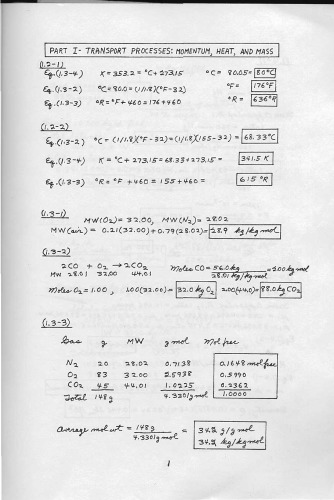 PART I- TRANSPORT PROCESSES: MOMENTUM, HEAT, AND MASS
(1.2-1)
Eq.(1.3-4) K = 353.2 = °C + 273.15 °C = 80.05 = 80°C
Eq.(1.3-2) °C = 80.0 = (1/1.8)(°F-32) °F = 176°F
Eq.(1.3-3) °R = °F + 460 = 176 + 460 °R = 636°R
(1.2-2)
Eq.(1.3-2) °C = (1/1.8)(°F-32) = (1/1.8)(155-32) = 68.33°C
Eq.(1.3-4) K = °C + 273.15 = 68.33 + 273.15 = 341.5 K
Eq.(1.3-3) °R = °F + 460 = 155 + 460 = 615 °R
(1.3-1) MW(O2) = 32.00, MW(N2) = 28.02
MW(air) = 0.21(32.00) + 0.79(28.02) = 28.9 kg/kg mol
(1.3-2)
2CO + O2 → 2CO2 Moles CO = 56.0 kg / 28.01 kg/kg mol = 2.00 kg mol
MW 28.01 32.00 44.01
Moles O2 = 1.00, 1.00(32.00) = 32.0 kg O2 2.00(44.0) = 88.0 kg CO2
(1.3-3)
Gas g MW g mol Mol frac
N2 20 28.02 0.7138 0.1648 mol frac
O2 83 32.00 2.5938 0.5990
CO2 45 44.01 1.0225 0.2362
Total 148 g 4.3301 g mol 1.0000
average mol wt = 148 g / 4.3301 g mol = 34.2 g/g mol
34.2 kg/kg mol
1